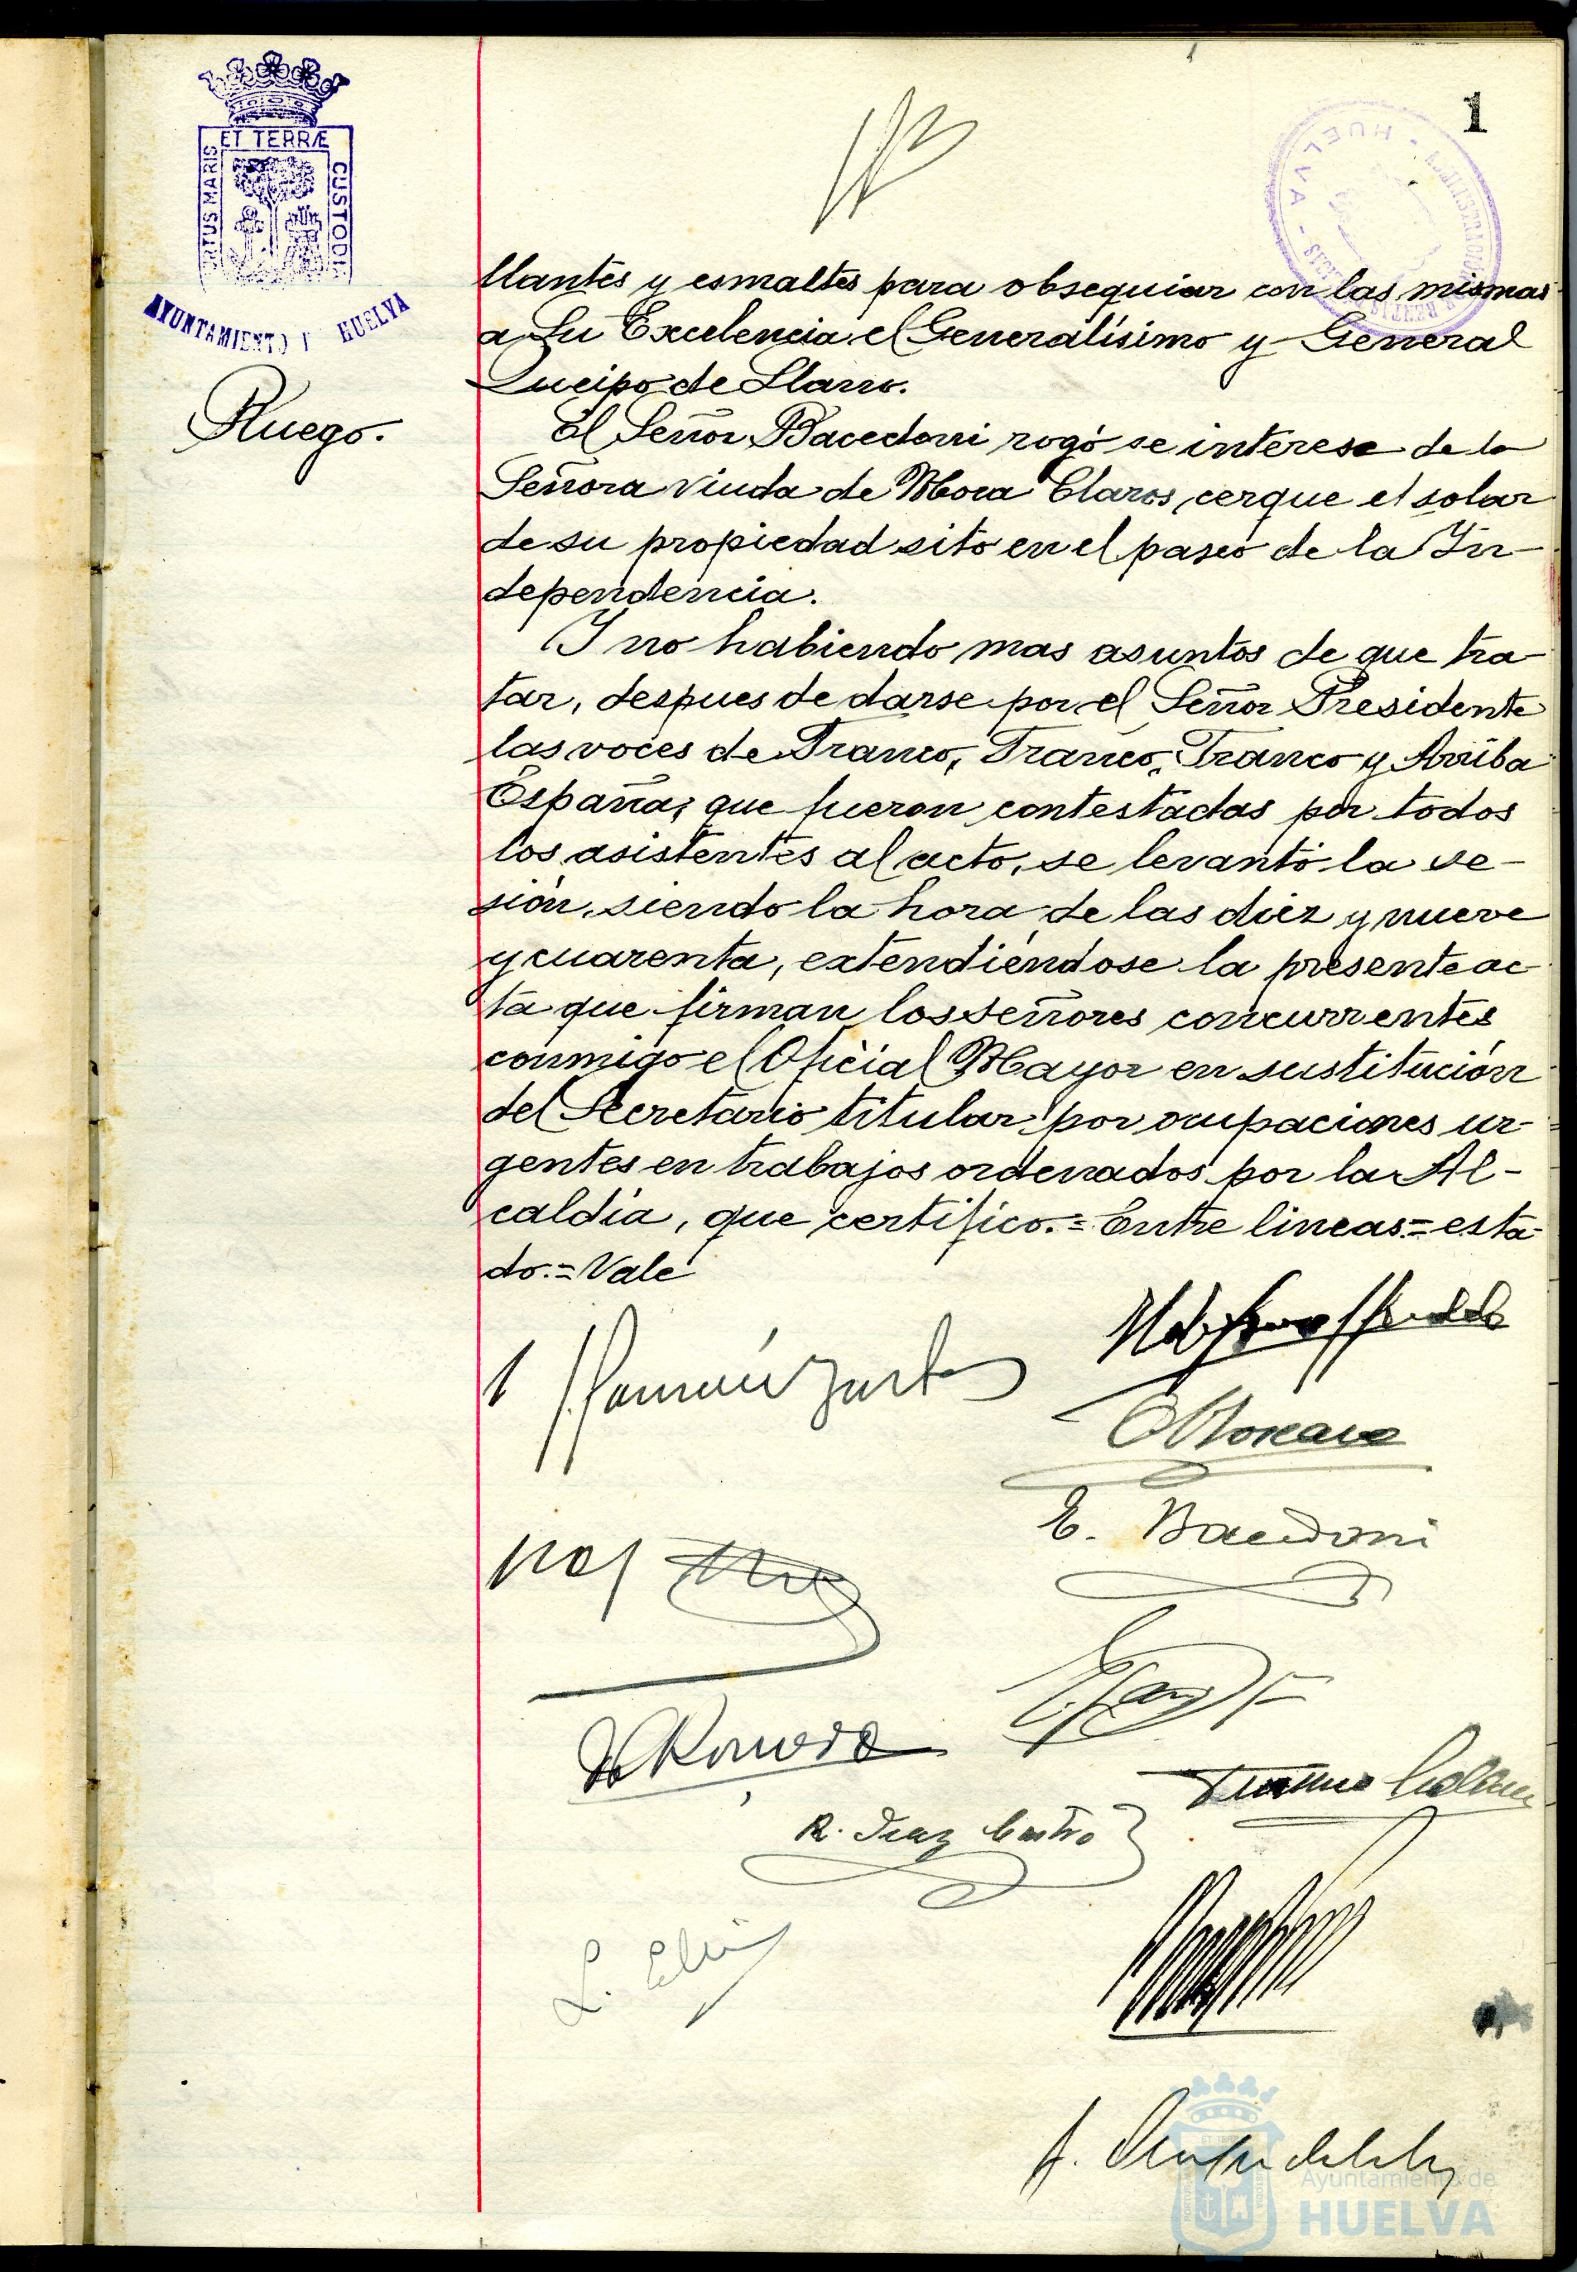 1
ET TERRÆ
CUSTODIA
AYUNTAMIENTO HUELVA
HUELVA
Ruego.
llantes y esmaltes para obsequiar con las mismas
a Su Excelencia el Generalísimo y General
Queipo de Llano.
El Señor Bacedoni rogó se interese de la
Señora viuda de Mora Claros, cerque el solar
de su propiedad sito en el paseo de la In-
dependencia.
Y no habiendo mas asuntos de que tra-
tar, despues de darse por el Señor Presidente
las voces de Franco, Franco, Franco y Arriba
España, que fueron contestadas por todos
los asistentes al acto, se levantó la se-
sión, siendo la hora de las diez y nueve
y cuarenta, extendiéndose la presente ac-
ta que firman los señores concurrentes
conmigo el Oficial Mayor en sustitución
del Secretario titular por ocupaciones ur-
gentes en trabajos ordenados por la Al-
caldía, que certifico.=Entre lineas=esta-
do.=Vale
E. Bacedoni
Romero
R. Diaz Castro
Ayuntamiento de
HUELVA